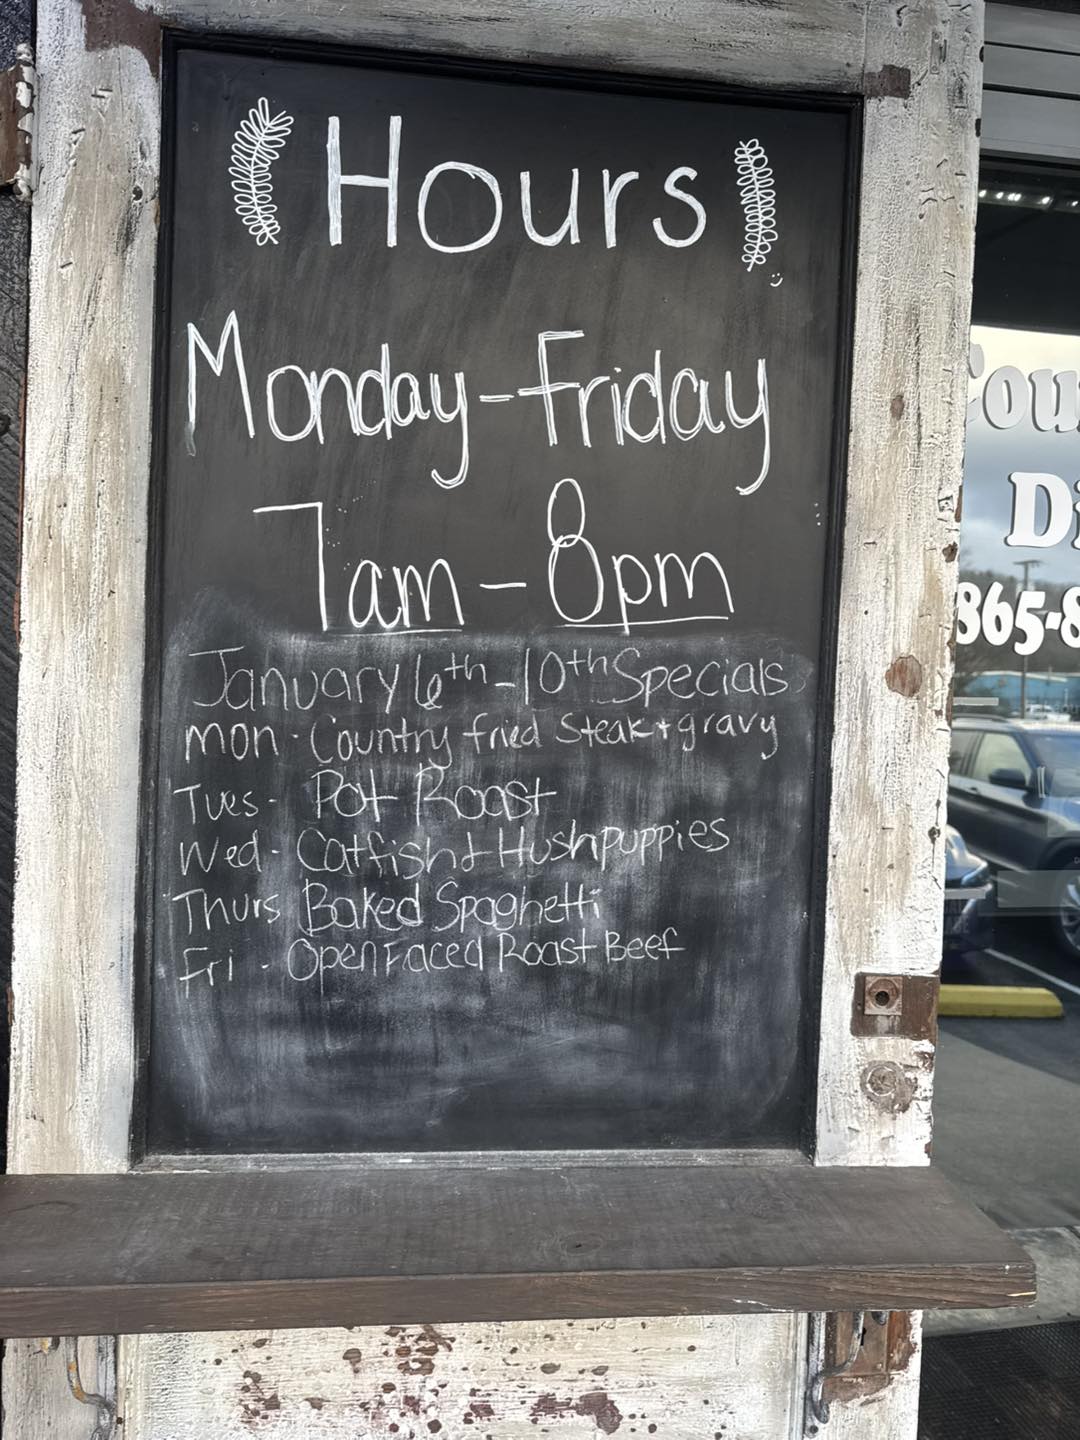 Hours
Monday-Friday
7am - 8pm
January 6th - 10th Specials
mon - Country fried Steak + gravy
Tues - Pot Roast
Wed - Catfish & Hushpuppies
Thurs Baked Spaghetti
Fri - Open Faced Roast Beef
865-8